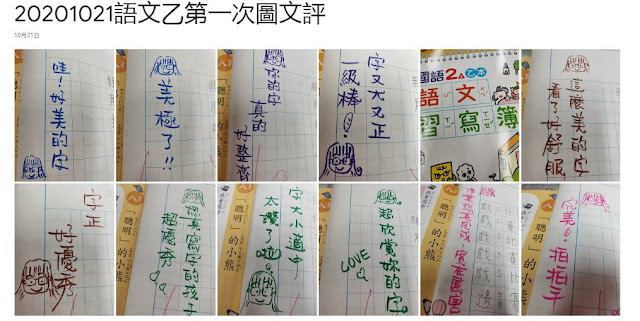 20201021語文乙第一次圖文評
10月21日
哇！好美的字
美極了!!
妳的字
真的
好整齊
字又大又正
一級棒！
國語2
乙本
語文
習寫簿
這麼美的字
看了好舒服
字正
好優秀
「聰明」的小熊
認真寫字的孩子
超優秀
「聰明」的小熊
字大小適中
太讚了啦！
超欣賞妳的字。
LOVE
「聰明」的小熊
實在厲害
「聰明」的小熊
完美！
拍拍手